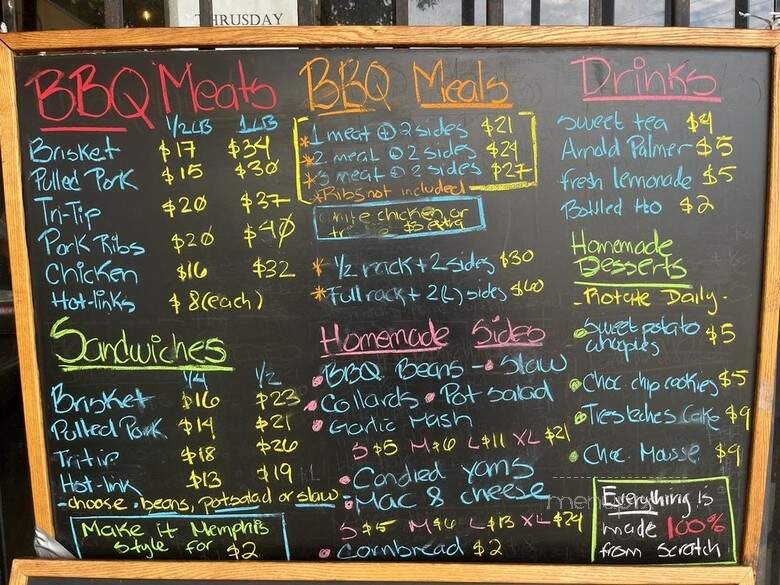 THRUSDAY
BBQ Meats
1/2 LB 1 LB
Brisket $17 $34
Pulled Pork $15 $30
Tri-Tip $20 $37
Pork Ribs $20 $40
Chicken $16 $32
Hot-links $8 (each)
Sandwiches
1/4 1/2
Brisket $16 $23
Pulled Pork $14 $21
Tritip $18 $26
Hot-link $13 $19
-choose beans, potsalad or slaw
Make it Memphis
Style for $2
BBQ Meals
*1 meat + 2 sides $21
*2 meat + 2 sides $24
*3 meat + 2 sides $27
*Ribs not included
white chicken, or
$3 extra
*1/2 rack + 2 sides $30
*Full rack + 2(L) sides $60
Homemade Sides
• BBQ Beans - • Slaw
• Collards • Pot salad
• Garlic Mash
S $5 M $6 L $11 XL $21
• Candied yams
• Mac & cheese
S $5 M $6 L $13 XL $24
• Cornbread $2
Drinks
Sweet tea $4
Arnold Palmer $5
fresh lemonade $5
Bottled H2O $2
Homemade
Desserts
- Rotate Daily -
• Sweet potato
whoopies $5
• Choc chip cookies $5
• Tres leches Cake $9
• Choc. Mousse $9
Everything is
made 100%
from Scratch